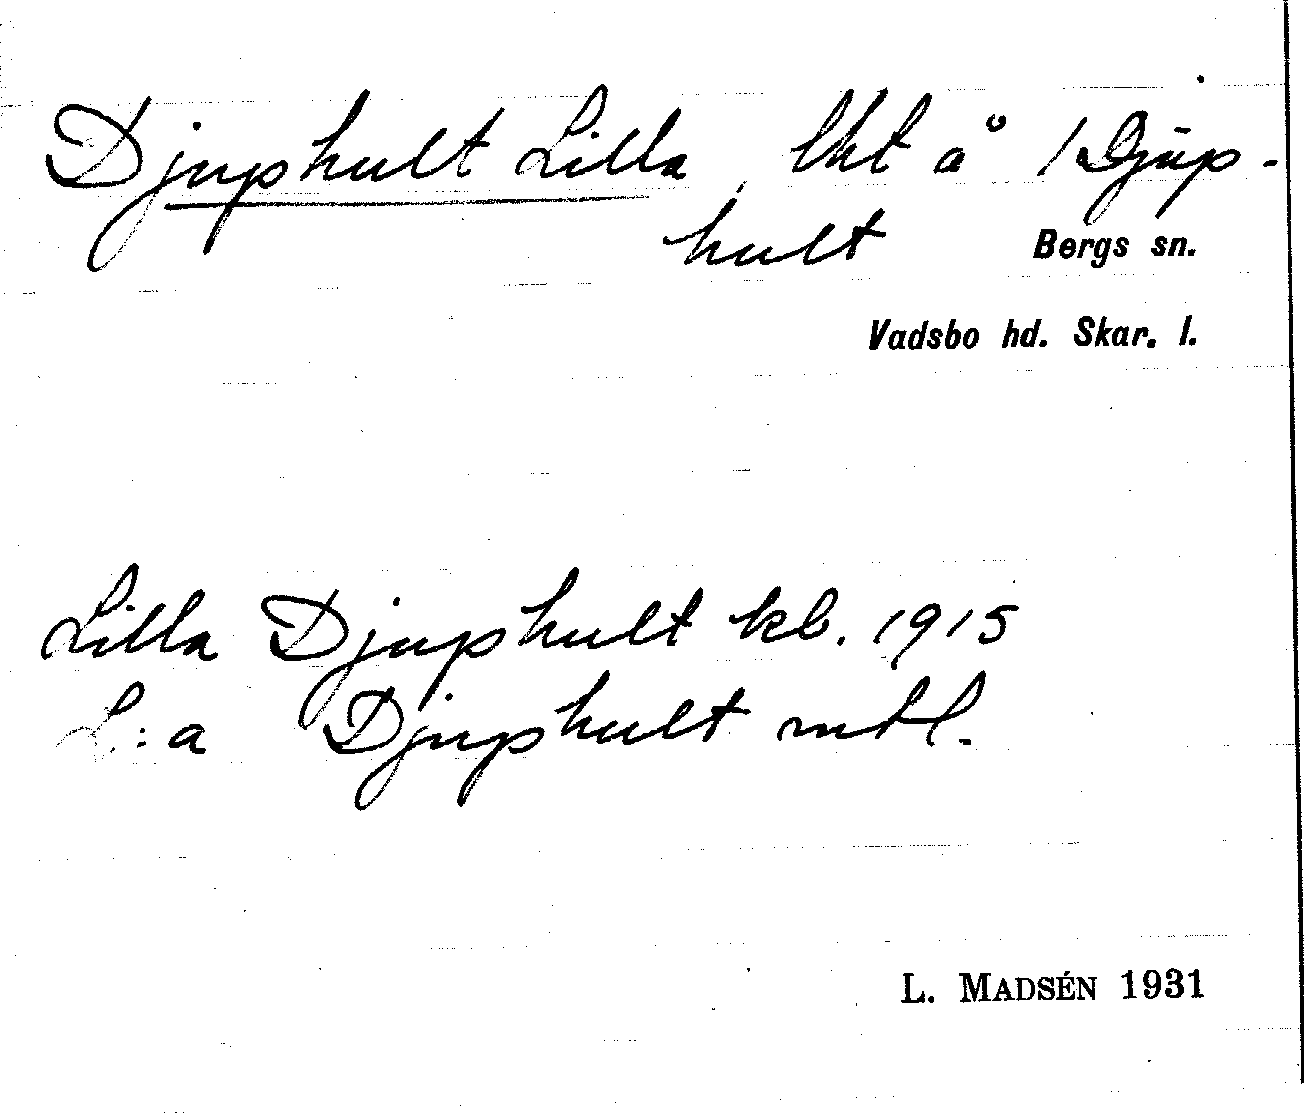 Djuphult Lilla, lht å 1 Djup-
hult
Bergs sn.
Vadsbo hd. Skar. l.
Lilla Djuphult kb. 1915
L:a Djuphult mtl.
L. MADSÉN 1931